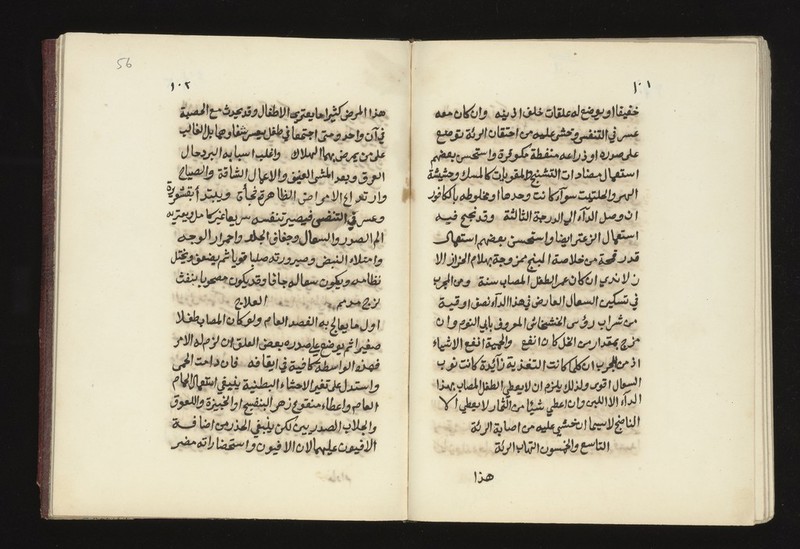 ١٠١
خفيفا او يوضع له علقات خلف اذنيه وان كان معه
عسر في التنفس وخشي عليه من احتقان الرئة توضع
على صدره او ذراعه منفطة واستحسن بعضهم
استعمال مضادات التشنج المقويات كالمسك وحشيشة
الهر والحلتيت سوآء كانت وحدها او مخلوطه بالكافور
ان وصل الدآء الي الدرجة الثالثة وقد نجح فيه
استعمال الزعتر ايضا واستحسن بعضهم استعمال
قدر قمحة من خلاصة البنج ممزوجة
ان كان عمر الطفل المصاب سنة ومن المجرب
في تسكين السعال العارض في هذا الدآء نصف اوقية
من شراب رؤس الخشخاش المعروف بابي النوم وان
مزج بمقدار من الخل كان انفع والحمية انفع الاشياء
اذ من المجرب ان كلما كانت التغذية زآئدة كانت نوب
السعال اقوي ولذلك يلزم ان لا يعطي الطفل المصاب بهذا
الدآء الا اللبن وان اعطي شيئا من الثمار لا يعطي الا
الناضج لاسيما ان خشي عليه من اصابة الرئة
التاسع والخمسون التهاب الرئة
هذا
56
١٠٢
هذا المرض كثيرا ما يعتري الاطفال وقد يحدث مع الحصبة
في آن واحد ومتي اجتمعا في طفل عسر شفاوهما بل الغالب
على من يمرض بهما الهلاك واغلب اسبابه البرد حال
العرق وبعد المشي العنيف والاعمال الشاقة والصياح
وارتداع الامراض الظاهرة فجأة ويبتدأ بقشعريرة
وعسر في التنفس فيصير تنفسه سريعا غير كامل ويعتريه
الم الصدر والسعال وجفاف الجلد واحمرار الوجه
وامتلاء النبض وصيرورته صلبا قويا ثم يضعف ويختل
نظامه ويكون سعاله جافا وقد يكون مصحوبا بنفث
لزج مدمم العلاج
اول ما يعالج به الفصد العام ولو كان المصاب طفلا
صغيرا ثم يوضع علي صدره بعض العلق ان لزم له الامر
فهذه الواسطة كافية في ايقافه فان دامت الحمى
واستدل على تغير الاحشاء البطنية ينبغي استعمال الحمام
العام واعطاء منقوع زهر البنفسج او الخبيزة واللعوق
والجلاب الصدريين لكن ينبغي الحذر من اضافة
الافيون عليهما لان الافيون واستحضاراته مضر